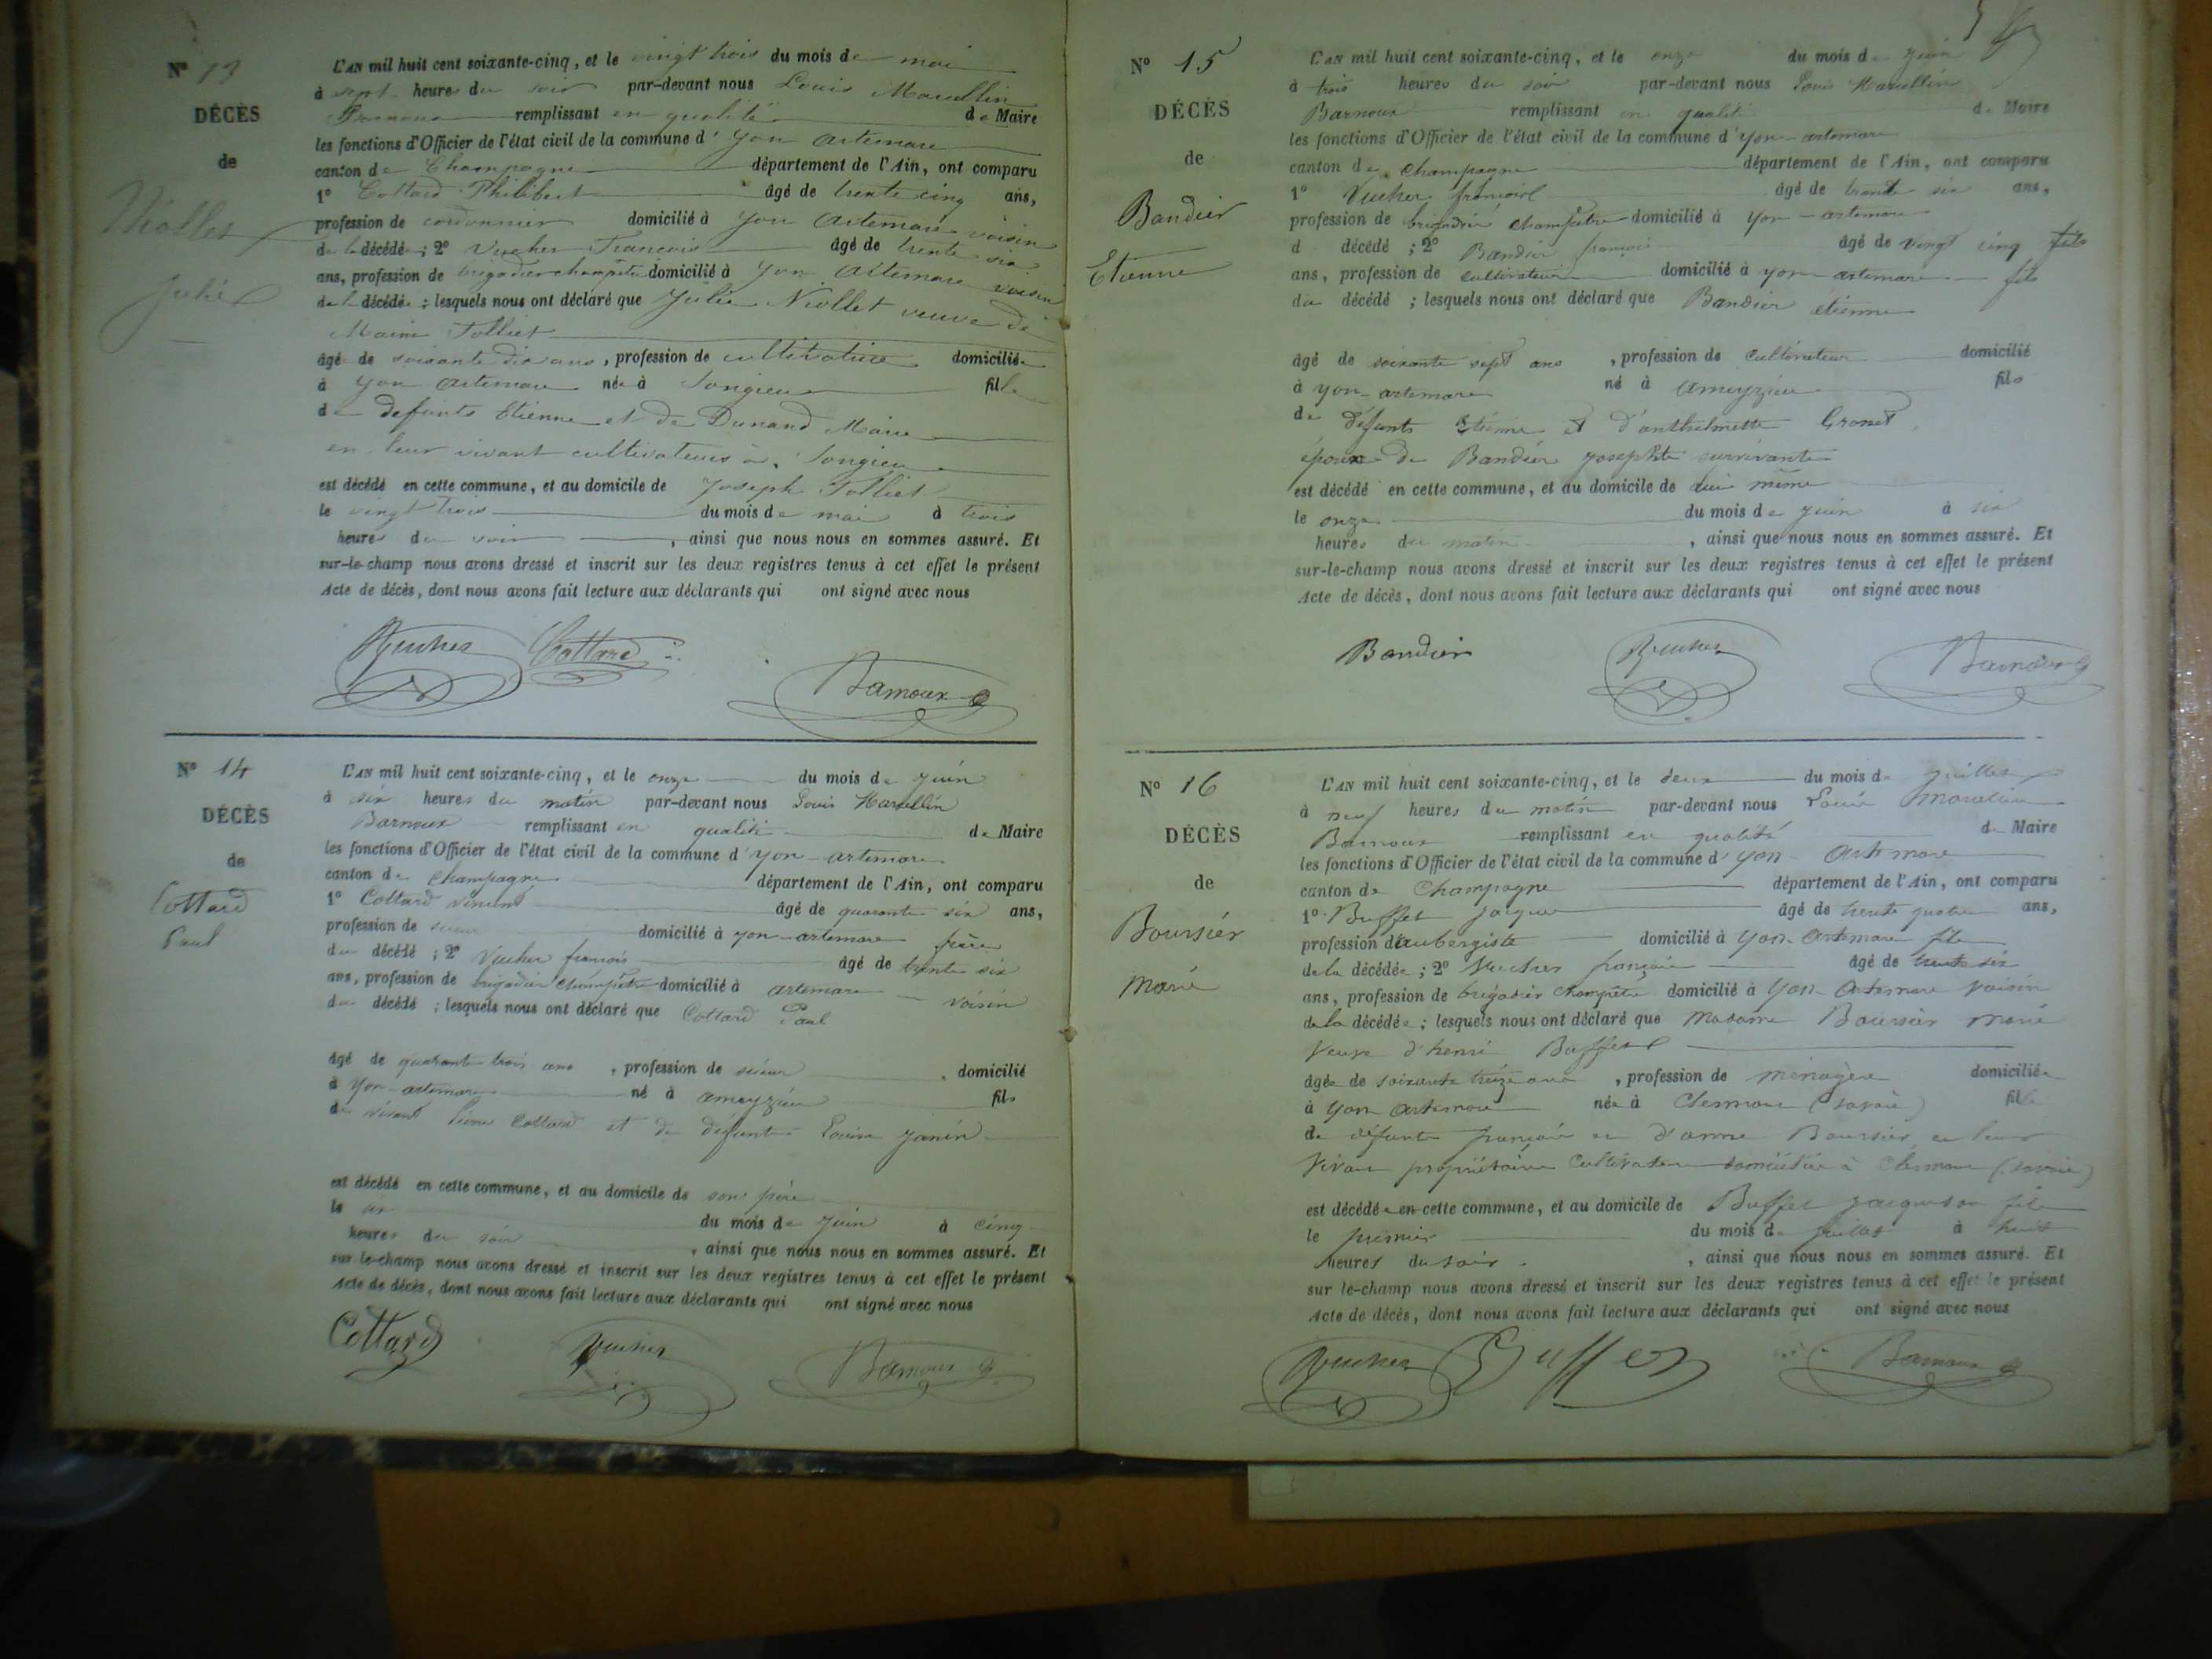 Nº 13
DÉCÈS
de
Niollet
Julie
L'AN mil huit cent soixante-cinq, et le vingt trois du mois de mai
à sept heures du soir par-devant nous Louis Marcellin
Barnoux remplissant en qualité de Maire
les fonctions d'Officier de l'état civil de la commune d' yon artemare
canton de Champagne département de l'Ain, ont comparu
1º Cottard Philibert âgé de trente cinq ans,
profession de cordonnier domicilié à yon artemare voisin
de la décédée; 2º Vucher Francois âgé de trente six
ans, profession de brigadier champêtre domicilié à yon artemare voisin
de la décédée; lesquels nous ont déclaré que Julie Niollet veuve de
Tolliet
âgée de soixante dix ans, profession de cultivatrice domiciliée
à yon artemare née à Songieu fille
de defunts Etienne et de Dunand Marie
en leur vivant cultivateurs à Songieu
est décédé en cette commune, et au domicile de Joseph Tolliet
le vingt trois du mois de mai à trois
heures du soir, ainsi que nous nous en sommes assuré. Et
sur-le-champ nous avons dressé et inscrit sur les deux registres tenus à cet effet le présent
Acte de décès, dont nous avons fait lecture aux déclarants qui ont signé avec nous
Vucher Cottard Barnoux
Nº 14
DÉCÈS
de
Cottard
Paul
L'AN mil huit cent soixante-cinq, et le onze du mois de juin
à six heures du matin par-devant nous Louis Marcellin
Barnoux remplissant en qualité de Maire
les fonctions d'Officier de l'état civil de la commune d' yon-artemare
canton de champagne département de l'Ain, ont comparu
1º Cottard vincent âgé de quarante six ans,
profession de domicilié à yon-artemare frère
du décédé; 2º Vucher francois âgé de trente six
ans, profession de brigadier champêtre domicilié à artemare voisin
du décédé; lesquels nous ont déclaré que Cottard Paul
âgé de quarante trois ans, profession de domicilié
à yon-artemare né à ameyzieu fils
de vivant Cottard et de défunte Louise Janin
est décédé en cette commune, et au domicile de son père
le du mois de juin à cinq
heures du soir, ainsi que nous nous en sommes assuré. Et
sur-le-champ nous avons dressé et inscrit sur les deux registres tenus à cet effet le présent
Acte de décès, dont nous avons fait lecture aux déclarants qui ont signé avec nous
Cottard Vucher Barnoux
Nº 15
DÉCÈS
de
Bandier
Etienne
L'AN mil huit cent soixante-cinq, et le onze du mois de juin
à trois heures du soir par-devant nous Louis Marcellin
Barnoux remplissant en qualité de Maire
les fonctions d'Officier de l'état civil de la commune d' yon-artemare
canton de champagne département de l'Ain, ont comparu
1º Vucher francois âgé de trente six ans,
profession de brigadier champêtre domicilié à yon-artemare
d décédé; 2º Bandier francois âgé de vingt cinq fils
ans, profession de cultivateur domicilié à yon-artemare fils
du décédé; lesquels nous ont déclaré que Bandier étienne
âgé de soixante sept ans, profession de cultivateur domicilié
à yon-artemare né à ameyzieu fils
de défunts Etienne et d'anthelmette
époux de Bandier josephte survivante
est décédé en cette commune, et au domicile de lui même
le onze du mois de juin à six
heures du matin, ainsi que nous nous en sommes assuré. Et
sur-le-champ nous avons dressé et inscrit sur les deux registres tenus à cet effet le présent
Acte de décès, dont nous avons fait lecture aux déclarants qui ont signé avec nous
Bandier Vucher Barnoux
Nº 16
DÉCÈS
de
Boursier
Marie
L'AN mil huit cent soixante-cinq, et le deux du mois de juillet
à neuf heures du matin par-devant nous Louis Marcelin
Barnoux remplissant en qualité de Maire
les fonctions d'Officier de l'état civil de la commune d' yon artemare
canton de Champagne département de l'Ain, ont comparu
1º Buffet jacques âgé de trente quatre ans,
profession d'aubergiste domicilié à yon-artemare fils
de la décédée; 2º Vucher françois âgé de trente six
ans, profession de brigadier champêtre domicilié à yon-artemare voisin
de la décédée; lesquels nous ont déclaré que Madame Boursier marie
Veuve d'henri Buffet
âgée de soixante treize ans, profession de ménagère domiciliée
à yon artemare née à Clermont (savoie) fille
de défunts françois et d'anne Boursier en leur
vivant propriétaires cultivateurs domiciliés à Clermont (savoie)
est décédée en cette commune, et au domicile de Buffet jacques son fils
le premier du mois de juillet à huit
heures du soir, ainsi que nous nous en sommes assuré. Et
sur le-champ nous avons dressé et inscrit sur les deux registres tenus à cet effet le présent
Acte de décès, dont nous avons fait lecture aux déclarants qui ont signé avec nous
Vucher Buffet Barnoux